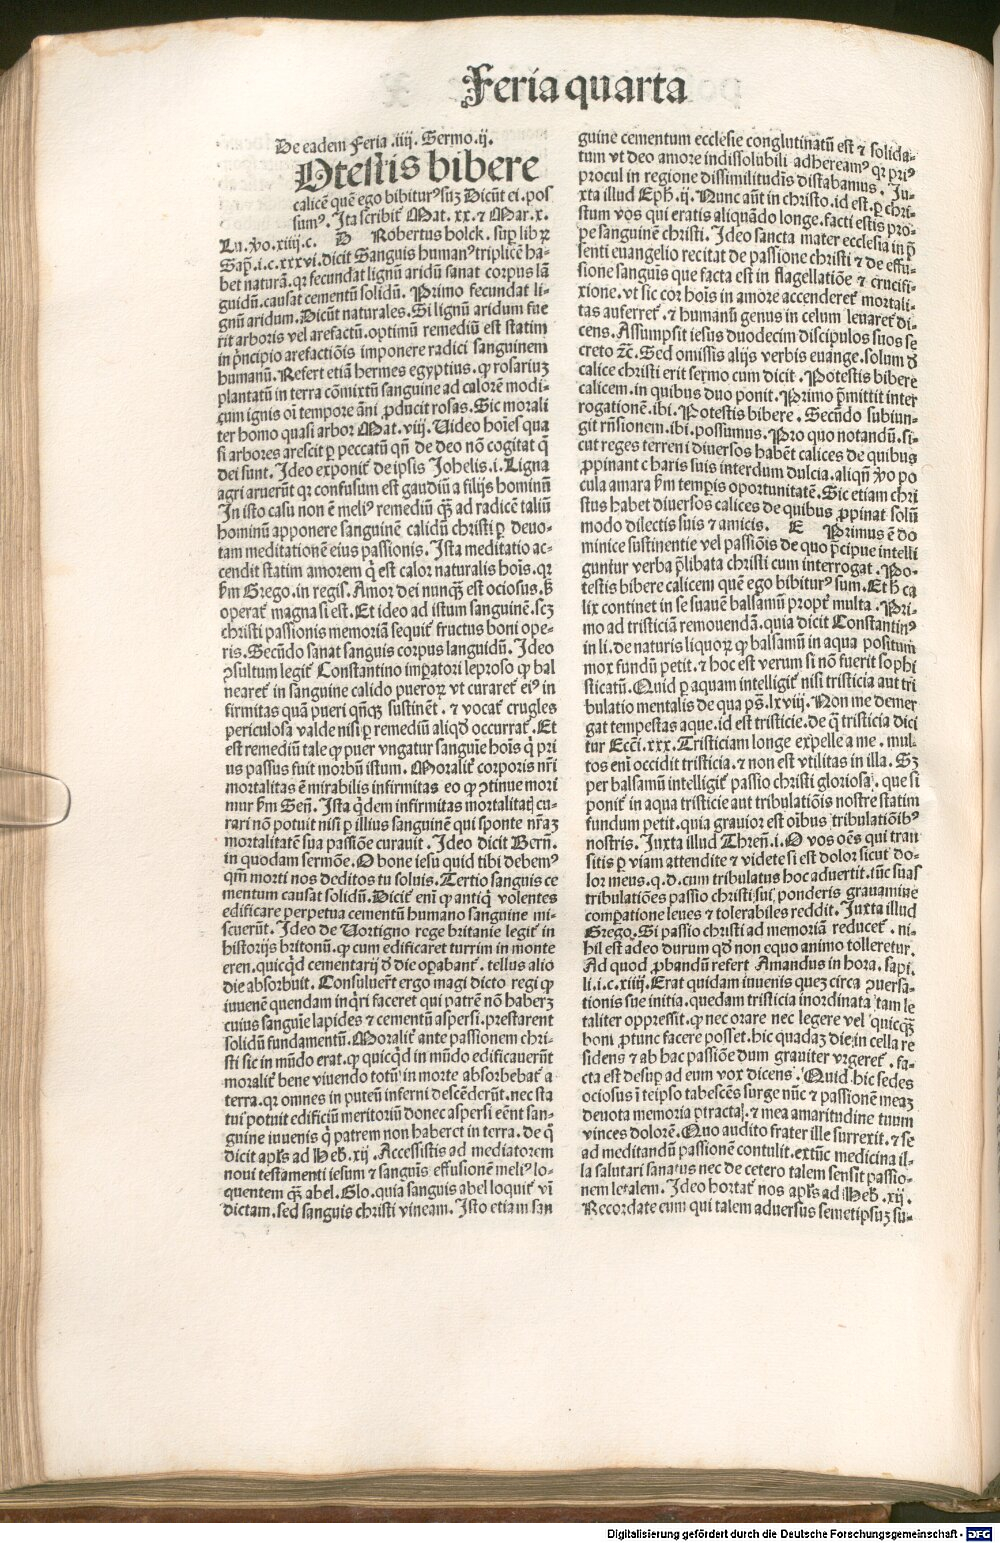 Feria quarta
De eadem Feria .iiij. Sermo .ij.
Otestis bibere
calicē quē ego bibiturꝰ suꝫ Dicūt ei. pos
sumꝰ. Ita scribit̄ Mat. xx. ⁊ Mar. x.
Lu. ꝟo. xiiij. c. D Robertus holck. suꝑ lib ꝝ
Sap̄. i. c. xxxvi. dicit Sanguis humanꝰ triplicē ha-
bet naturā. qꝛ fecundat lignū aridū sanat corpus lā
guidū. causat cementū solidū. Primo fecundat li-
gnū aridum. Dicūt naturales. Si lignū aridum fue
rit arboris vel arefactū. optimū remediū est statim
in p̄ncipio arefactiōis imponere radici sanguinem
humanū. Refert etiā hermes egyptius. ꝙ rosariuꝫ
plantatū in terra cōmixtū sanguine ad calorē modi-
cum ignis oī tempore āni ꝓducit rosas. Sic morali
ter homo quasi arbor Mat. viij. Uideo hoīes qua
si arbores arescit ꝑ peccatū qn̄ de deo nō cogitat q̄
dei sunt. Ideo exponit̄ de ipsis Johelis. i. Ligna
agri aruerūt qꝛ confusum est gaudiū a filijs hominū
In isto casu non ē meliꝰ remediū qꝫ̄ ad radicē taliū
hominū apponere sanguinē calidū christi ꝑ deuo-
tam meditationē eius passionis. Ista meditatio ac-
cendit statim amorem q̄ est calor naturalis hoīs. qꝛ
ẜm Grego. in regis. Amor dei nunqꝫ̄ est ociosus. ꝃ
operat̄ magna si est. Et ideo ad istum sanguinē. scꝫ
christi passionis memoriā sequit̄ fructus boni ope-
ris. Secūdo sanat sanguis corpus languidū. Ideo
ꝯsultum legit̄ Constantino imꝑatori leproso ꝙ bal
nearet̄ in sanguine calido pueroꝝ vt curaret̄ eiꝰ in
firmitas quā pueri qn̄cꝫ sustinēt. ⁊ vocat̄ crugles
periculosa valde nisi ꝑ remediū aliqḋ occurrat̄. Et
est remediū tale ꝙ puer vngatur sanguīe hoīs q̄ pri
us passus fuit morbū istum. Moralit̄ corporis nr̄i
mortalitas ē mirabilis infirmitas eo ꝙ ꝯtinue mori
mur ẜm Señ. Ista q̄dem infirmitas mortalitatꝭ cu-
rari nō potuit nisi ꝑ illius sanguinē qui sponte nr̄aꝫ
mortalitatē sua passiōe curauit. Ideo dicit Berñ.
in quodam sermōe. O bone iesu quid tibi debemꝰ
qm̄ morti nos deditos tu soluis. Tertio sanguis ce
mentum causat solidū. Dicit̄ enī ꝙ antiqꝭ volentes
edificare perpetua cementū humano sanguine mi-
scuerūt. Ideo de Uortigno rege britanie legit̄ in
historijs britonū. ꝙ cum edificaret turrim in monte
eren. quicq̄d cementarij ḋ die oꝑabant̄. tellus alio
die absorbuit. Consuluer̄t ergo magi dicto regi ꝙ
iuuenē quendam inq̄ri faceret qui patrē nō haberꝫ
cuius sanguīe lapides ⁊ cementū aspersi. prestarent
solidū fundamentū. Moralit̄ ante passionem chri-
sti sic in mūdo erat. ꝙ quicq̄d in mūdo edificauerūt
moralit̄ bene viuendo totū in morte absorbebat̄ a
terra. qꝛ omnes in puteū inferni descēderūt. nec sta
tui potuit edificiū meritoriū donec aspersi eēnt san-
guine iuuenis q̄ patrem non haberet in terra. de q̄
dicit apl̄s ad Heb̄. xij. Accessistis ad mediatorem
noui testamenti iesum ⁊ sanguīs effusionē meliꝰ lo-
quentem qꝫ̄ abel. Glo. quia sanguis abel loquit̄ vī
dictam. sed sanguis christi vineam. Isto etiam san
guine cementum ecclesie conglutinatū est ⁊ solida-
tum vt deo amore indissolubili adhereamꝰ qꝛ priꝰ
procul in regione dissimilitudīs distabamus. Ju-
xta illud Eph. ij. Nunc aūt in christo. id est. ꝑ chri-
stum vos qui eratis aliquādo longe. facti estis pro-
pe sanguinē christi. Ideo sancta mater ecclesia in p̄
senti euangelio recitat de passione christi ⁊ de effu-
sione sanguis que facta est in flagellatiōe ⁊ crucifi-
xione. vt sic cor hoīs in amore accenderet̄ mortali-
tas auferret̄. ⁊ humanū genus in celum leuaret̄ di-
cens. Assumpsit iesus duodecim discipulos suos se
creto ⁊c̄. Sed omissis alijs verbis euange. solum ḋ
calice christi erit sermo cum dicit. Potestis bibere
calicem. in quibus duo ponit. Primo p̄mittit inter
rogationē. ibi. Potestis bibere. Secūdo subiun-
git rn̄sionem. ibi. possumus. Pro quo notandū. si-
cut reges terreni diuersos habēt calices de quibus
ꝓpinant charis suis interdum dulcia. aliqn̄ ꝟo po
cula amara ẜm temꝑis oportunitatē. Sic etiam chri
stus habet diuersos calices de quibus ꝓpinat solū
modo dilectis suis ⁊ amicis. E Primus ē do
minice sustinentie vel passiōis de quo p̄cipue intelli
guntur verba p̄libata christi cum interrogat. Po-
testis bibere calicem quē ego bibiturꝰ sum. Et h̄ ca
lix continet in se suauē balsamū propt̄ multa. Pri-
mo ad tristiciā remouendā. quia dicit Constantinꝰ
in li. de naturis liquoꝝ ꝙ balsamū in aqua positum
mox fundū petit. ⁊ hoc est verum si nō fuerit sophi
sticatū. Quid ꝑ aquam intelligit̄ nisi tristicia aut tri
bulatio mentalis de qua ps̄. lxviij. Non me demer
gat tempestas aque. id est tristicie. de q̄ tristicia dici
tur Ecci. xxx. Tristiciam longe expelle a me. mul-
tos enī occidit tristicia. ⁊ non est vtilitas in illa. Sꝫ
per balsamū intelligit̄ passio christi gloriosa. que si
ponit̄ in aqua tristicie aut tribulatiōis nostre statim
fundum petit. quia grauior est oībus tribulatiōibꝰ
nostris. Juxta illud Threñ. i. O vos oēs qui tran
sitis ꝑ viam attendite ⁊ videte si est dolor sicut do-
lor meus. q. d. cum tribulatus hoc aduertit. iūc suas
tribulatiōes passio christi sui ponderis grauamine
comꝑatione leues ⁊ tolerabiles reddit. Juxta illud
Grego. Si passio christi ad memoriā reducet̄. ni-
hil est adeo durum qḋ non equo animo tolleretur.
Ad quod ꝓbandū refert Amandus in hora. sapi.
li. i. c. xiiij. Erat quidam iuuenis queꝫ circa ꝯuersa-
tionis sue initia. quedam tristicia inordinata tam le
taliter oppressit. ꝙ nec orare nec legere vel quicqꝫ̄
boni ꝓtunc facere posset. hic quadaꝫ die in cella re
sidens ⁊ ab hac passiōe dum grauiter vrgeret̄. fa-
cta est desuꝑ ad eum vox dicens. Quid hic sedes
ociosus ī teipso tabescēs surge nūc ⁊ passionē meaꝫ
deuota memoria ꝑtracta. ⁊ mea amaritudine tuum
vinces dolorē. Quo audito frater ille surrexit. ⁊ se
ad meditandū passionē contulit. extūc medicina il-
la salutari sanatus nec de cetero talem sensit passio-
nem letalem. Ideo hortat̄ nos apl̄s ad Heb̄. xij.
Recordate eum qui talem aduersus semetipsuꝫ su-
Digitalisierung gefördert durch die Deutsche Forschungsgemeinschaft - DFG